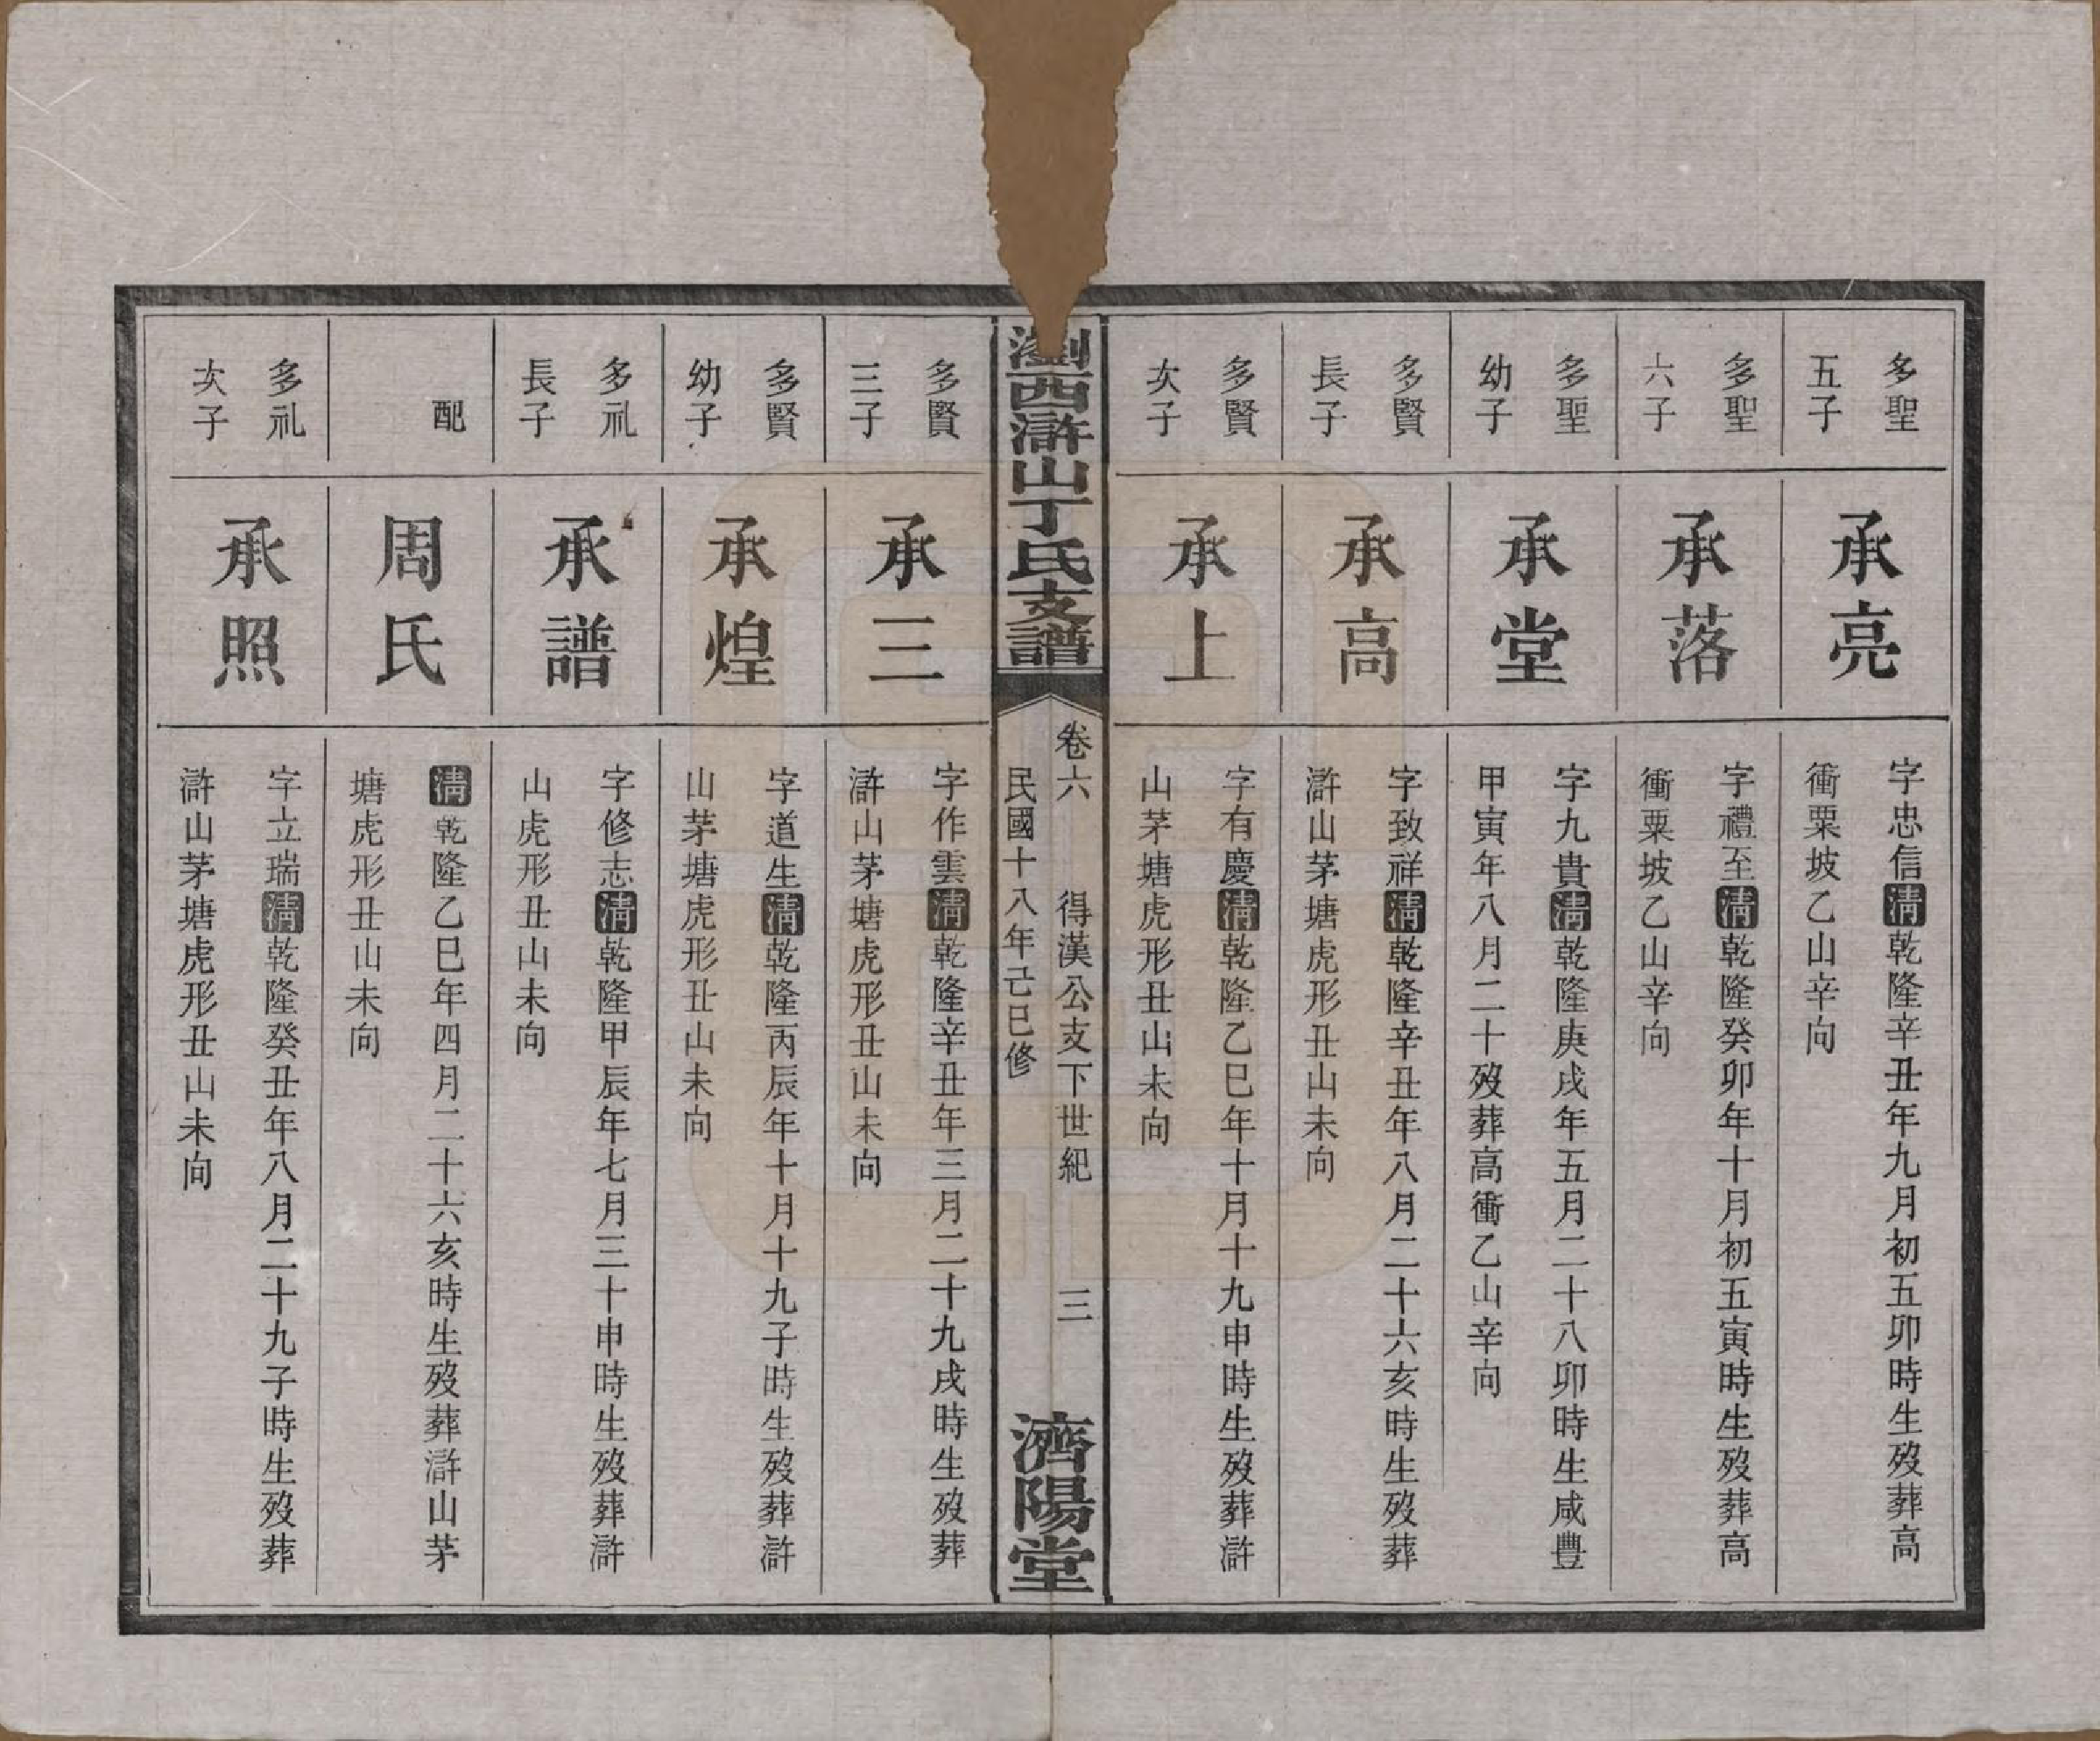 多聖
五子
承亮
字忠信清乾隆辛丑年九月初五卯時生歿葬高
衝粟坡乙山辛向
多聖
六子
承落
字禮至清乾隆癸卯年十月初五寅時生歿葬高
衝粟坡乙山辛向
多聖
幼子
承堂
字九貴清乾隆庚戌年五月二十八卯時生咸豐
甲寅年八月二十歿葬高衝乙山辛向
多賢
長子
承高
字致祥清乾隆辛丑年八月二十六亥時生歿葬
滸山茅塘虎形丑山未向
多賢
次子
承上
字有慶清乾隆乙巳年十月十九申時生歿葬滸
山茅塘虎形丑山未向
瀏西滸山丁氏支譜
卷六　得漢公支下世紀　三
民國十八年己巳修
濟陽堂
多賢
三子
承三
字作雲清乾隆辛丑年三月二十九戌時生歿葬
滸山茅塘虎形丑山未向
多賢
幼子
承煌
字道生清乾隆丙辰年十月十九子時生歿葬滸
山茅塘虎形丑山未向
多礼
長子
承譜
字修志清乾隆甲辰年七月三十申時生歿葬滸
山虎形丑山未向
配
周氏
清乾隆乙巳年四月二十六亥時生歿葬滸山茅
塘虎形丑山未向
多礼
次子
承照
字立瑞清乾隆癸丑年八月二十九子時生歿葬
滸山茅塘虎形丑山未向